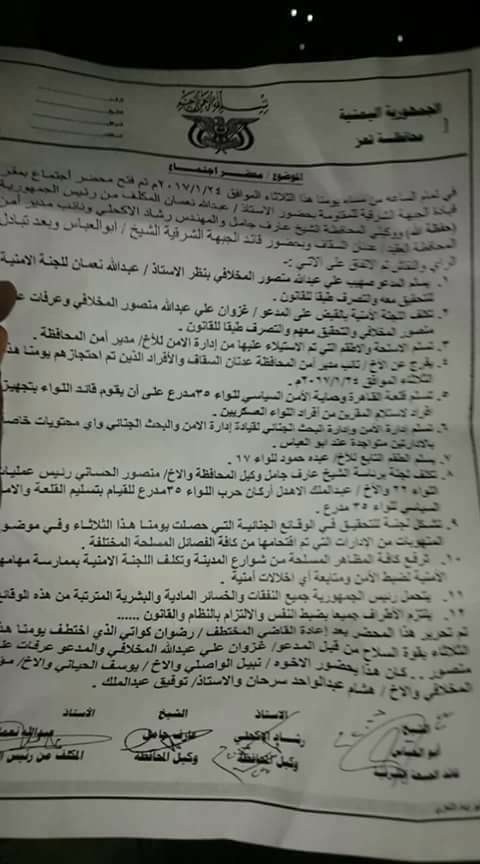 بسم الله الرحمن الرحيم
الجمهورية اليمنية
محافظة تعز
الموضوع / محضر اجتماع
في تمام الساعه من مساء يومنا هذا الثلاثاء الموافق ٢٠١٧/١/٢٤م تم فتح محضر اجتماع بمقر
قيادة الجبهة الشرقية للمقاومة بحضور الاستاذ / عبدالله نعمان المكلف من رئيس الجمهورية
(حفظة الله) ووكيلي المحافظة الشيخ عارف جامل والمهندس رشاد الاكحلي ونائب مدير أمن
المحافظة العقيد / عدنان السقاف وبحضور قائد الجبهة الشرقية الشيخ / أبو العباس وبعد تبادل
الرأي والنقاش تم الاتفاق على الآتي :-
١. يسلم المدعو صهيب علي عبدالله منصور المخلافي بنظر الاستاذ / عبدالله نعمان للجنة الامنية
للتحقيق معه والتصرف طبقا للقانون .
٢. تكلف اللجنة الأمنية بالقبض على المدعو / غزوان علي عبدالله منصور المخلافي وعرفات
منصور المخلافي والتحقيق معهم والتصرف طبقا للقانون .
٣. تسلم الاسلحة والاطقم التي تم الاستيلاء عليها من إدارة الامن للأخ/ مدير أمن المحافظة .
٤. يفرج عن الاخ / نائب مدير أمن المحافظة عدنان السقاف والأفراد الذين تم احتجازهم يومنا هذا
الثلاثاء الموافق ٢٠١٧/١/٢٤م .
٥. تسلم قلعة القاهرة وحماية الأمن السياسي للواء ٣٥مدرع على أن يقوم قائد اللواء بتجهيز
افراد لاستلام المقرين من أفراد اللواء العسكريين .
٦. تسلم إدارة الأمن وإدارة البحث الجنائي لقيادة إدارة الامن والبحث الجنائي وأي محتويات خاصة
بالادارتين متواجدة عند أبو العباس .
٧. يسلم الطقم التابع للأخ/ عبده حمود للواء ١٧ .
٨. تكلف لجنة برئاسة الشيخ عارف جامل وكيل المحافظة والاخ/ منصور الحساني رئيس عمليات
اللواء ٢٢ والاخ / عبدالملك الاهدل أركان حرب اللواء ٣٥مدرع للقيام بتسليم القلعة والأمن
السياسي للواء ٣٥ مدرع .
٩. تشكل لجنة للتحقيق في الوقائع الجنائية التي حصلت يومنا هذا الثلاثاء وفي موضوع
المنهوبات من الإدارات التي تم اقتحامها من كافة الفصائل المسلحة المختلفة .
١٠. ترفع كافة المظاهر المسلحة من شوارع المدينة وتكلف اللجنة الامنية بممارسة مهامها
الأمنية لضبط الأمن ومتابعة أي اخلالات أمنية .
١١. يتحمل رئيس الجمهورية جميع النفقات والخسائر المادية والبشرية المترتبة من هذه الوقائع
١٢. يلتزم الأطراف جميعا بضبط النفس والالتزام بالنظام والقانون ......
تم تحرير هذا المحضر بعد إعادة القاضي المختطف / رضوان كواتي الذي اختطف يومنا هذا
الثلاثاء بقوة السلاح من قبل المدعو/ غزوان علي عبدالله المخلافي والمدعو عرفات
منصور .. كان هذا بحضور الاخوه / نبيل الواصلي والاخ / يوسف الحياني والاخ/
المخلافي والاخ / هشام عبدالواحد سرحان والاستاذ/ توفيق عبدالملك .
الشيخ الاستاذ الشيخ الأستاذ
أبو العباس رشاد الاكحلي عارف جامل عبدالله نعمان
قائد الجبهة الشرقية وكيل المحافظة وكيل المحافظة المكلف من رئيس